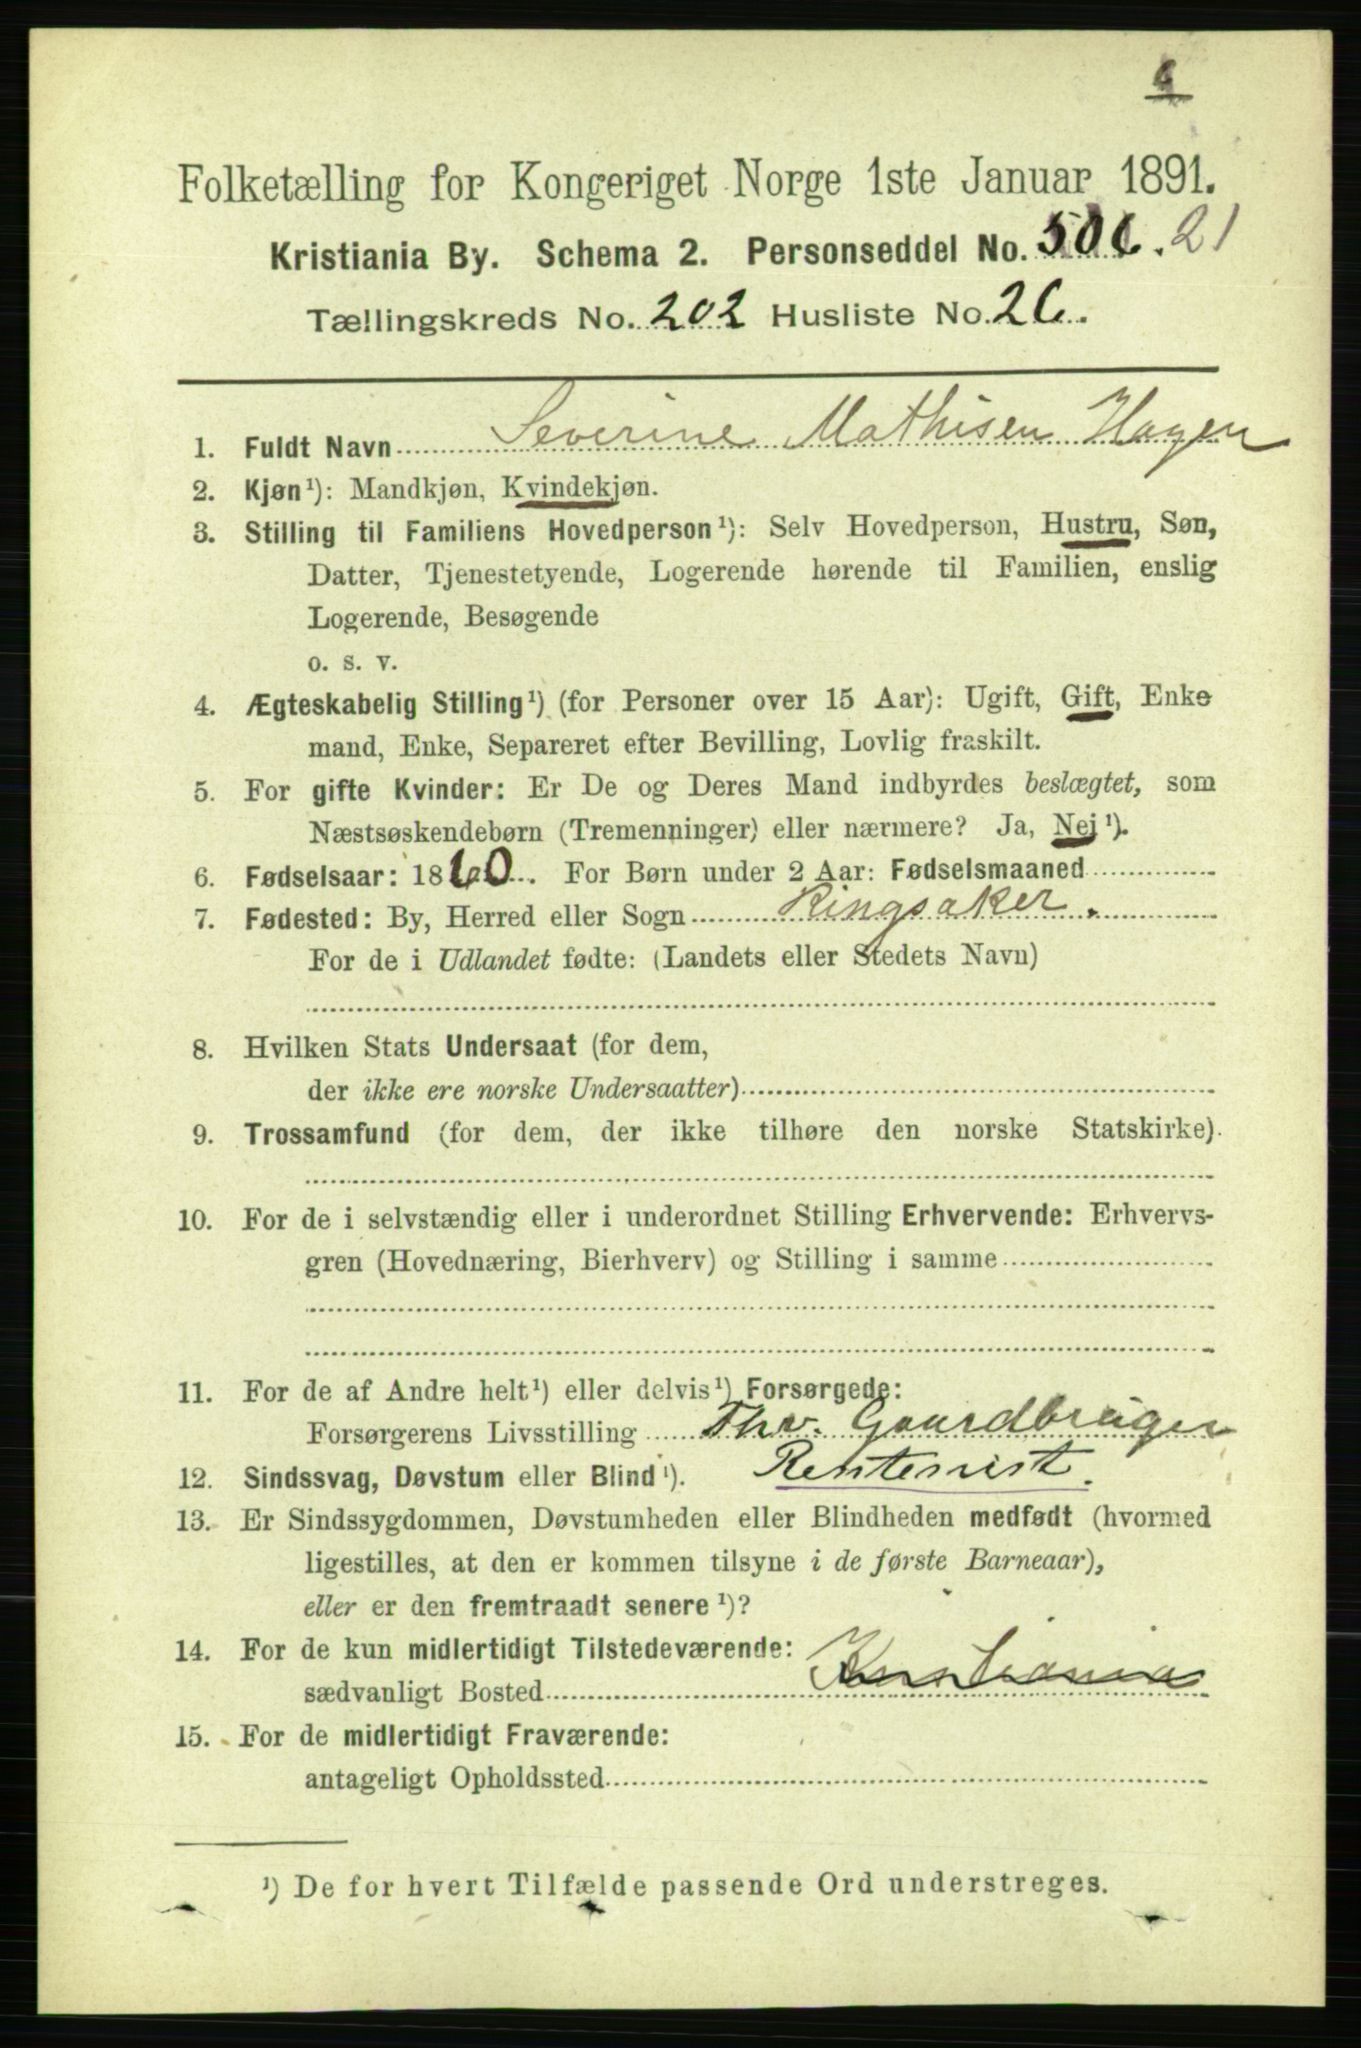 6
Folketælling for Kongeriget Norge 1ste Januar 1891.
Kristiania By. Schema 2. Personseddel No. 506. 21
Tællingskreds No. 202 Husliste No. 26.
1. Fuldt Navn Severine Mathisen Hagen
2. Kjøn¹): Mandkjøn, Kvindekjøn.
3. Stilling til Familiens Hovedperson¹): Selv Hovedperson, Hustru, Søn,
Datter, Tjenestetyende, Logerende hørende til Familien, enslig
Logerende, Besøgende
o. s. v.
4. Ægteskabelig Stilling¹) (for Personer over 15 Aar): Ugift, Gift, Enke
mand, Enke, Separeret efter Bevilling, Lovlig fraskilt.
5. For gifte Kvinder: Er De og Deres Mand indbyrdes beslægtet, som
Næstsøskendebørn (Tremenninger) eller nærmere? Ja, Nej¹).
6. Fødselsaar: 1860. For Børn under 2 Aar: Fødselsmaaned
7. Fødested: By, Herred eller Sogn Ringsaker.
For de i Udlandet fødte: (Landets eller Stedets Navn)
8. Hvilken Stats Undersaat (for dem,
der ikke ere norske Undersaatter)
9. Trossamfund (for dem, der ikke tilhøre den norske Statskirke).
10. For de i selvstændig eller i underordnet Stilling Erhvervende: Erhvervs-
gren (Hovednæring, Bierhverv) og Stilling i samme
11. For de af Andre helt¹) eller delvis¹) Forsørgede:
Forsørgerens Livsstilling Thv. Gaardbruger
12. Sindssvag, Døvstum eller Blind¹). Rentenist.
13. Er Sindssygdommen, Døvstumheden eller Blindheden medfødt (hvormed
ligestilles, at den er kommen tilsyne i de første Barneaar),
eller er den fremtraadt senere¹)?
14. For de kun midlertidigt Tilstedeværende:
sædvanligt Bosted Kristiania
15. For de midlertidigt Fraværende:
antageligt Opholdssted
¹) De for hvert Tilfælde passende Ord understreges.